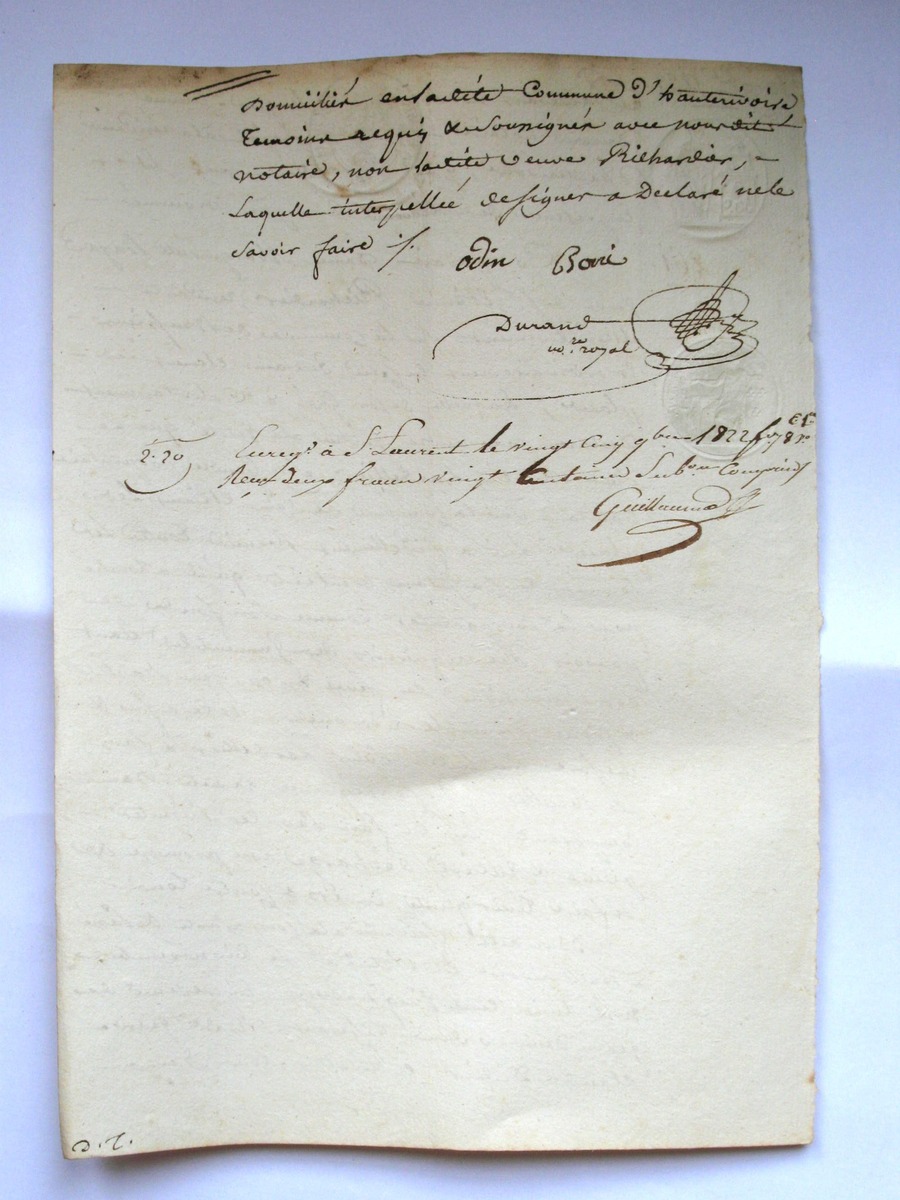 Domiciliés en ladite Commune D'hauterivoire
Temoins requis & Soussignés avec nous dit
notaire, non ladite veuve Richardier,
Laquelle interpellée de signer a Declaré ne le
Savoir faire ./.
odin Boiré
Durand
no.re royal
2.20 Enreg.é à St Laurent le vingt Cinq 9bre 1822 fo 78 ro
Reçu deux francs vingt Centimes Sub.on Comprise
Guillaume
D.T.